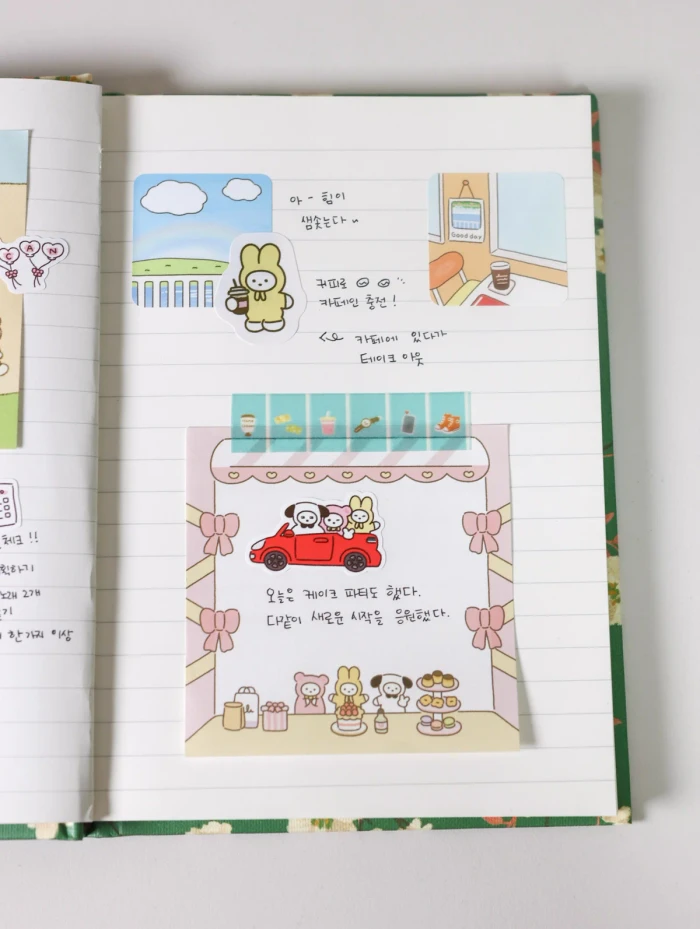 CAN
체크 !!
획하기
노래 2개
기
한가지 이상
아 - 힘이
샘솟는다
Good day
커피로
카페인 충전!
카페에 있다가
테이크 아웃
오늘은 케이크 파티도 했다.
다같이 새로운 시작을 응원했다.